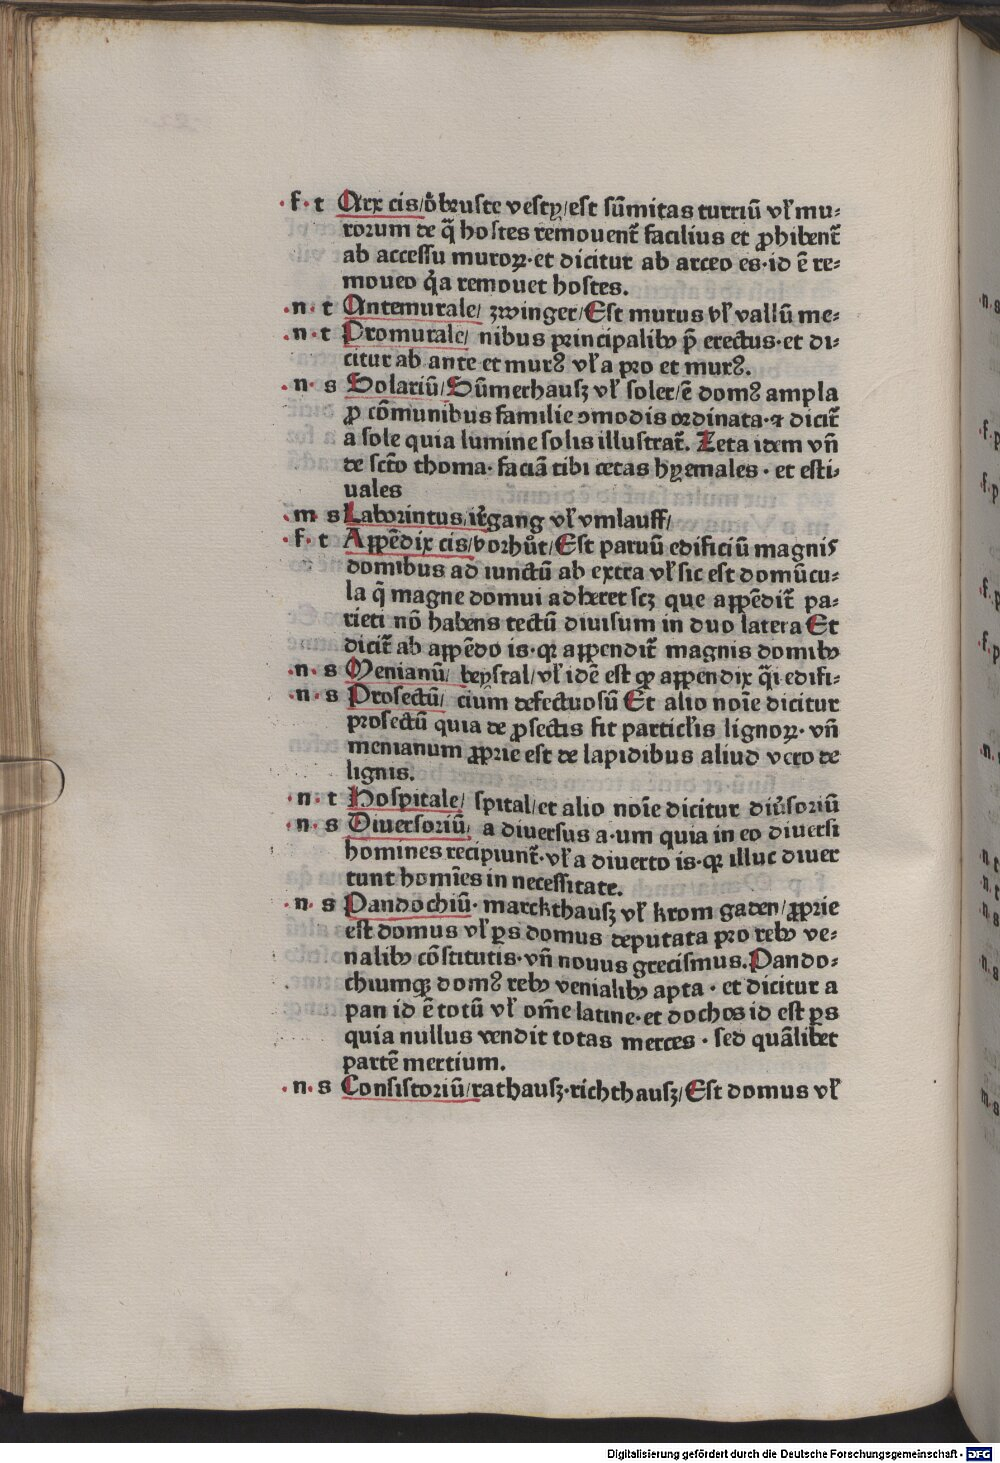 ·f·t Arx cis/ob̾ruste vesty/est sūmitas turriū vl̕ mu-
rorum de q̄ hostes remouent̄ facilius et ꝓhibent̄
ab accessu muroꝝ·et dicitur ab arceo es·id ē re-
moueo q̇a remouet hostes.
·n·t Antemurale/ zwinger/Est murus vl̕ vallū me-
·n·t Promurale/ nibus principalibꝫ p̄ erectus·et di-
citur ab ante et murꝰ vl̕ a pro et murꝰ.
·n·s Solariū/Sūmerhausz vl̕ soler/ē domꝰ ampla
ꝓ cōmunibus familie ꝯmodis ordinata·⁊ dicit̄
a sole quia lumine solis illustrat̄. Zeta idem vñ
de scto thoma·faciā tibi cetas hyemales·et esti-
uales
·m·s Laborintus/irrgang vl̕ vmlauff/
·f·t Appēdix cis/vorhůt/Est paruū edificiū magnis
domibus ad iunctū ab extra vl̕ sic est domūcu-
la q̄ magne domui adheret scꝫ que appēdit̄ pa-
rieti nō habens tectū diuisum in duo latera Et
dicit̄ ab appēdo is·qꝛ appendit̄ magnis domibꝫ
·n·s Menianū/ beystal/vl̕ idē est qꝫ appendix q̄i edifi-
·n·s Prosectū/ cium defectuosū Et alio noīe dicitur
prosectū quia de ꝓsectis fit particl̕is lignoꝝ·vñ
menianum ꝓprie est de lapidibus aliud vero de
lignis.
·n·t Hospitale/ spital/et alio noīe dicitur diūsoriū
·n·s Diuersoriū/ a diuersus a·um quia in eo diuersi
homines recipiunt̄·vl̕ a diuerto is·qꝛ illuc diuer
tunt homīes in necessitate.
·n·s Pandochiū·marckthausz vl̕ krom gaden/ꝓprie
est domus vl̕ ꝑs domus deputata pro rebꝫ ve-
nalibꝫ cōstitutis·vñ nouus grecismus.Pando-
chiumqꝫ domꝰ rebꝫ venialibꝫ apta·et dicitur a
pan id ē totū vl̕ om̄e latine·et dochos id est ꝑs
quia nullus vendit totas merces·sed quālibet
partē mertium.
·n·s Consistoriū/rathausz·richthausz/Est domus vl̕
Digitalisierung gefördert durch die Deutsche Forschungsgemeinschaft - DFG